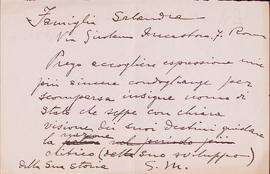 Famiglia Salandra
Via Girolamo Fracastoro, 7 Roma
Prego accogliere espressione mie
più sincere condoglianze per
scomparsa insigne uomo di
Stato che seppe con chiara
visione dei suoi destini guidare
la nazione nel periodo
politico (del suo sviluppo)
della sua storia G. M.